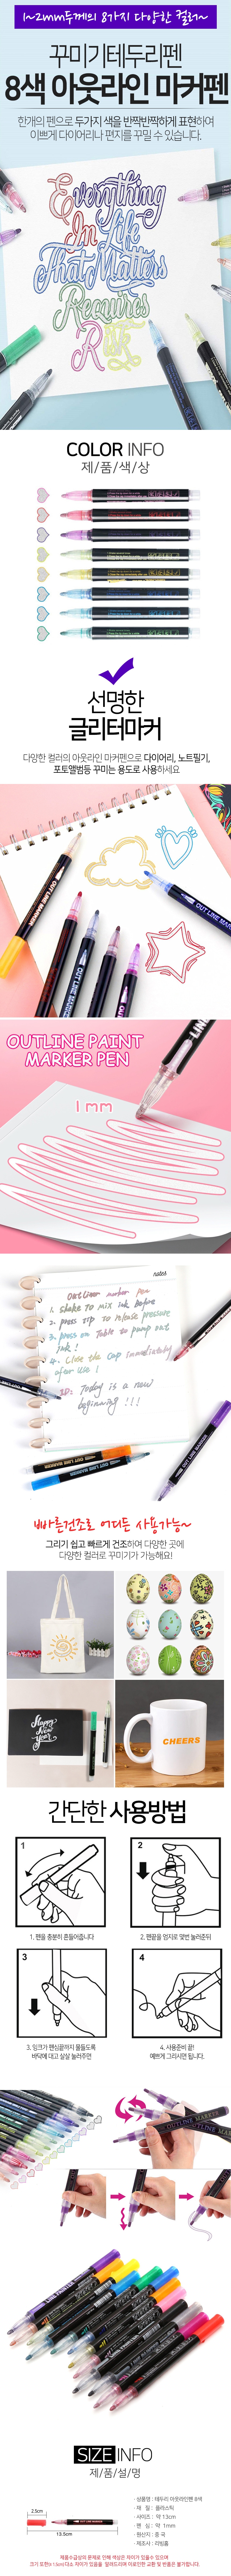 1~2mm두께의 8가지 다양한 컬러~
꾸미기테두리펜
8색 아웃라인 마커펜
한개의 펜으로 두가지 색을 반짝반짝하게 표현하여
이쁘게 다이어리나 편지를 꾸밀 수 있습니다.
Everything
In Life
That Matters
Requires
COLOR INFO
제/품/색/상
선명한
글리터마커
다양한 컬러의 아웃라인 마커펜으로 다이어리, 노트필기,
포토앨범등 꾸미는 용도로 사용하세요
OUT LINE MARKER
OUT LINE MARKER
OUT LINE MARKER
OUTLINE PAINT
MARKER PEN
1mm
notes
Outliner marker pen
1. shake to mix ink before
2. press tip to release pressure
3. press on Table to pump out
ink!
4. Close the cap immediately
after use!
Today is a new
beginning!!!
OUT LINE MARKER
빠른건조로 어디든 사용가능~
그리기 쉽고 빠르게 건조하여 다양한 곳에
다양한 컬러로 꾸미기가 가능해요!
Happy
New
Year
CHEERS
간단한 사용방법
1
2
1. 펜을 충분히 흔들어줍니다
2. 펜끝을 엄지로 몇번 눌러준뒤
3
4
3. 잉크가 펜심끝까지 물들도록
바닥에 대고 살살 눌러주면
4. 사용준비 끝!
예쁘게 그리시면 됩니다.
OUTLINE MARKER
OUTLINE MARKER
SIZE INFO
제/품/설/명
2.5cm
13.5cm
· 상품명 : 테두리 아웃라인펜 8색
· 재 질 : 플라스틱
· 사이즈 : 약 13cm
· 펜 심 : 약 1mm
· 원산지 : 중 국
· 제조사 : 리빙홈
제품수급상의 문제로 인해 색상은 차이가 있을수 있으며
크기 또한 0.1.5cm 다소 차이가 있음을 알려드리며 이로인한 교환 및 반품은 불가합니다.